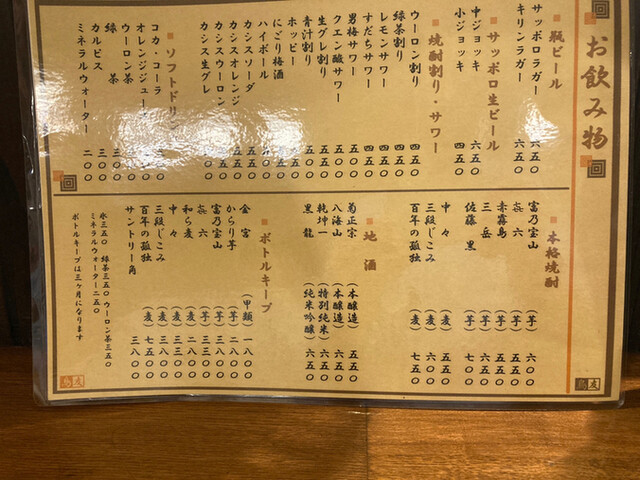 お飲み物
瓶ビール
サッポロラガー 六五〇
キリンラガー 六五〇
サッポロ生ビール
中ジョッキ 六五〇
小ジョッキ 四五〇
焼酎割り・サワー
ウーロン割り 四五〇
緑茶割り 四五〇
レモンサワー 四五〇
すだちサワー 四五〇
男梅サワー 五〇〇
クエン酸サワー 五〇〇
生グレ割り 五五〇
青汁割り 五〇〇
ホッピー
にごり梅酒
ハイボール
カシスソーダ 五五〇
カシスオレンジ 五五〇
カシスウーロン
カシス生グレ
ソフトドリンク
コカ・コーラ
オレンジジュース
ウーロン茶 三〇〇
緑茶 三〇〇
カルピス 三〇〇
ミネラルウォーター 二〇〇
本格焼酎
富乃宝山 (芋) 六〇〇
㐂六 (芋) 五五〇
赤霧島 (芋) 五五〇
三岳 (芋) 六五〇
佐藤 黒 (芋) 七五〇
中々 (麦) 五五〇
三段じこみ (麦) 六〇〇
百年の孤独 (麦) 七五〇
地酒
菊正宗 (本醸造) 五五〇
八海山 (本醸造) 六五〇
乾坤一 (特別純米) 六五〇
黒龍 (純米吟醸) 六五〇
ボトルキープ
金宮 (甲類) 一八〇〇
からり芋 (芋) 二八〇〇
富乃宝山 (芋) 三八〇〇
㐂六 (芋) 三三〇〇
和ら麦 (麦) 二八〇〇
中々 (麦) 三三〇〇
三段じこみ (麦) 三八〇〇
百年の孤独 (麦) 七五〇〇
サントリー角 三八〇〇
氷三五〇 緑茶三五〇 ウーロン茶三五〇
ミネラルウォーター二五〇
ボトルキープは三ヶ月になります